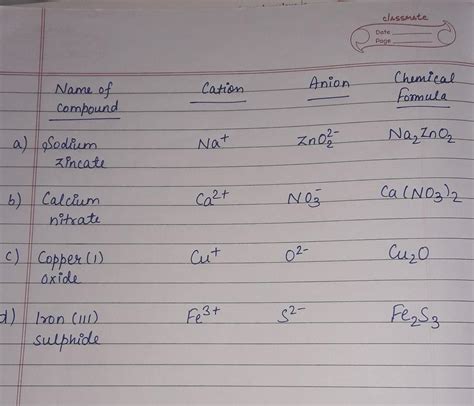 classmate
Date
Page
Name of compound Cation Anion Chemical Formula
a) Sodium zincate Na⁺ ZnO₂²⁻ Na₂ZnO₂
b) Calcium nitrate Ca²⁺ NO₃⁻ Ca(NO₃)₂
c) Copper(I) oxide Cu⁺ O²⁻ Cu₂O
d) Iron (III) sulphide Fe³⁺ S²⁻ Fe₂S₃